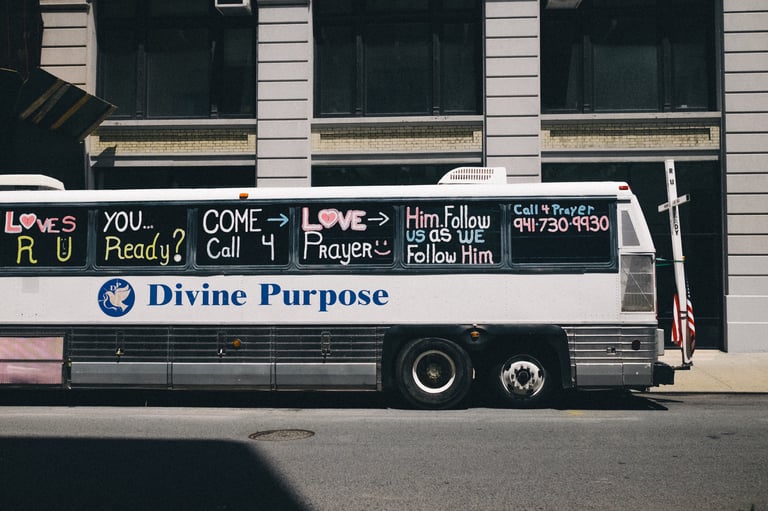 LOVES
R U
YOU...
Ready?
COME →
Call 4
LOVE →
Prayer
Him. Follow
us as WE
Follow Him
Call 4 Prayer
941-730-9930
Divine Purpose
DP
RU
DY